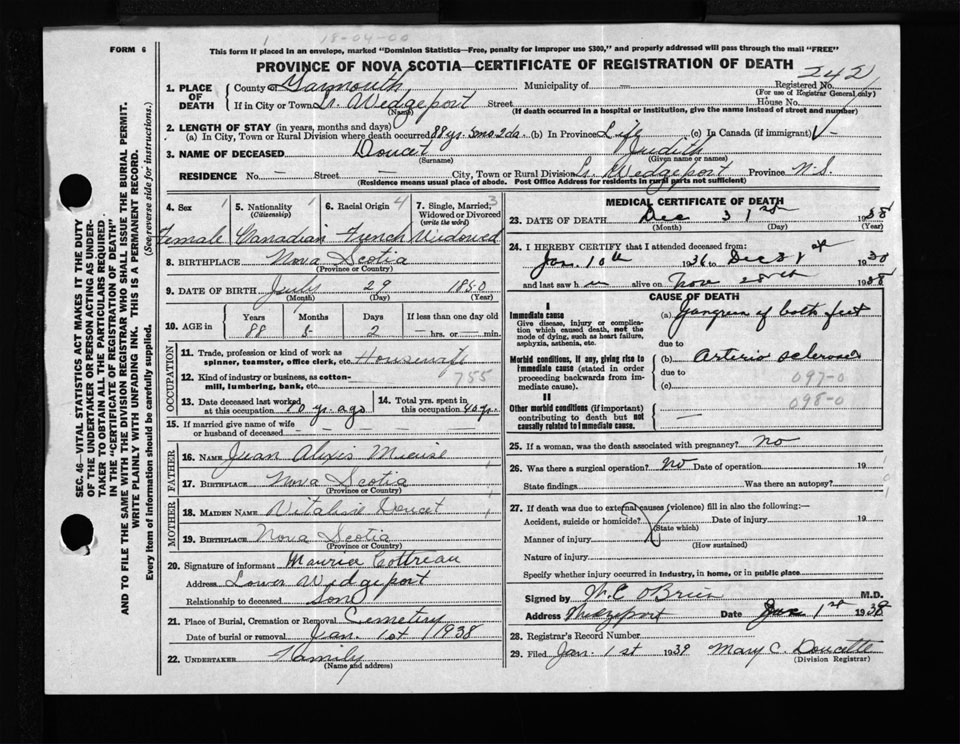 18-04-00
FORM 6
This form if placed in an envelope, marked "Dominion Statistics—Free, penalty for improper use $300," and properly addressed will pass through the mail "FREE"
PROVINCE OF NOVA SCOTIA—CERTIFICATE OF REGISTRATION OF DEATH
SEC. 46—VITAL STATISTICS ACT MAKES IT THE DUTY
OF THE UNDERTAKER OR PERSON ACTING AS UNDER-
TAKER TO OBTAIN ALL THE PARTICULARS REQUIRED
IN THE "CERTIFICATE OF REGISTRATION OF DEATH"
AND TO FILE THE SAME WITH THE DIVISION REGISTRAR WHO SHALL ISSUE THE BURIAL PERMIT.
WRITE PLAINLY WITH UNFADING INK. THIS IS A PERMANENT RECORD.
Every item of information should be carefully supplied. (See reverse side for instructions.)
1. PLACE OF DEATH
County of Yarmouth Municipality of — Registered No. 242
(For use of Registrar General only)
If in City or Town Lr. Wedgeport Street House No.
(Name) (If death occurred in a hospital or institution, give the name instead of street and number)
2. LENGTH OF STAY (in years, months and days)
(a) In City, Town or Rural Division where death occurred 88 yr. 5 mo 2 da. (b) In Province Life (c) In Canada (if immigrant)
3. NAME OF DECEASED Doucet Judith
(Surname) (Given name or names)
RESIDENCE No. — Street — City, Town or Rural Division Lr. Wedgeport Province N.S.
(Residence means usual place of abode. Post Office Address for residents in rural parts not sufficient)
4. Sex 5. Nationality (Citizenship) 6. Racial Origin 7. Single, Married, Widowed or Divorced (write the word)
1 1 4 3
Female Canadian French Widowed
8. BIRTHPLACE Nova Scotia
(Province or Country)
9. DATE OF BIRTH July 29 1850
(Month) (Day) (Year)
10. AGE in Years Months Days If less than one day old
88 5 2 — hrs. or — min.
OCCUPATION
11. Trade, profession or kind of work as spinner, teamster, office clerk, etc. Housewife
12. Kind of industry or business, as cotton-mill, lumbering, bank, etc. 755
13. Date deceased last worked at this occupation 10 yr. ago 14. Total yrs. spent in this occupation 40 yr.
15. If married give name of wife or husband of deceased —
FATHER
16. NAME Jean Alexis Miuise
17. BIRTHPLACE Nova Scotia
(Province or Country)
MOTHER
18. MAIDEN NAME Vitalise Doucet
19. BIRTHPLACE Nova Scotia
(Province or Country)
20. Signature of informant Maurice Cottreau
Address Lower Wedgeport
Relationship to deceased Son
21. Place of Burial, Cremation or Removal Cemetery
Date of burial or removal Jan. 1st 1938
22. UNDERTAKER Family
(Name and address)
MEDICAL CERTIFICATE OF DEATH
23. DATE OF DEATH Dec 31st 1938
(Month) (Day) (Year)
24. I HEREBY CERTIFY that I attended deceased from:
Jan. 10th 1936 to Dec 31st
and last saw h alive on Nov 28th 1938
CAUSE OF DEATH
I
Immediate cause
Give disease, injury or complication which caused death, not the mode of dying, such as heart failure, asphyxia, asthenia, etc.
(a) Gangrene of both feet
due to
Morbid conditions, if any, giving rise to immediate cause (stated in order proceeding backwards from immediate cause).
(b) Arterio sclerosis
due to
(c)
097-0
098-0
II
Other morbid conditions (if important) contributing to death but not causally related to immediate cause. —
25. If a woman, was the death associated with pregnancy? no
26. Was there a surgical operation? no Date of operation 19
State findings Was there an autopsy?
27. If death was due to external causes (violence) fill in also the following:—
Accident, suicide or homicide? Date of injury 19
(State which)
Manner of injury
(How sustained)
Nature of injury
Specify whether injury occurred in industry, in home, or in public place
Signed by W.C. O'Brien M.D.
Address Wedgeport Date Jan 1st 1938
28. Registrar's Record Number
29. Filed Jan. 1st 1939 Mary C. Doucette
(Division Registrar)